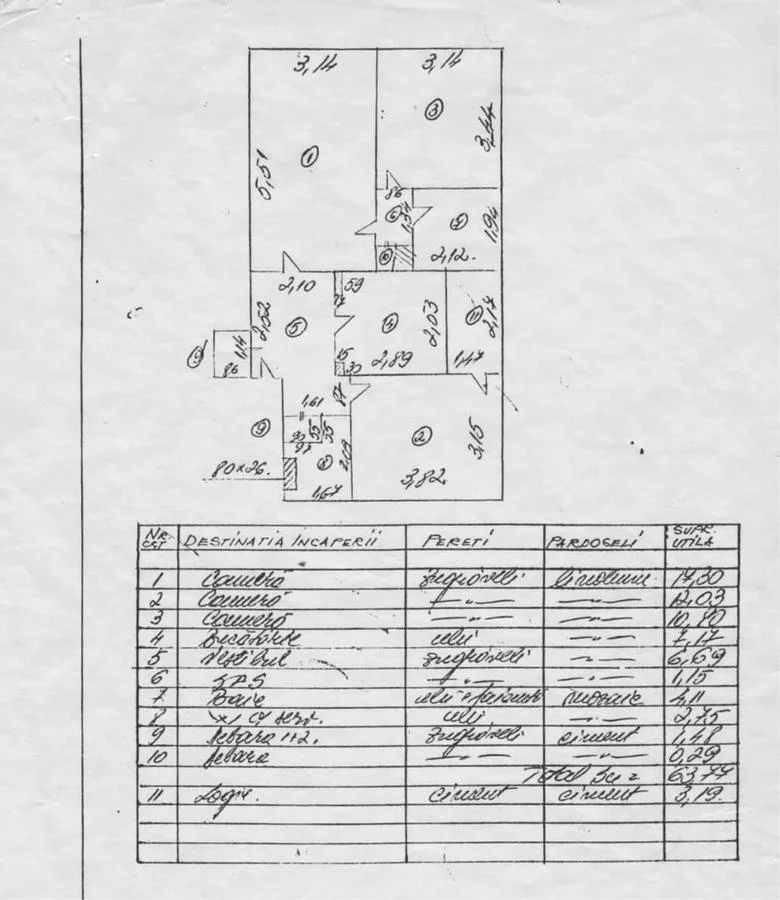 3,14 3,14
③
3,44
①
5,51
86
⑥ 1,34
⑦ 1,94
⑩ 2,12.
2,10 59
⑤ ④ 2,03 ⑪ 2,17
2,52
1,14
86
15
30
2,89 1,47
87
1,61
⑨ ② 3,15
55 55
97
⑧ 2,09
80x26.
1,67 3,82
NR. CRT DESTINATIA INCAPERII PERETI PARDOSELI SUPR. UTILA
1 Cameră zugrăveli linoleum 17,30
2 Cameră —〃— —〃— 12,03
3 Cameră —〃— —〃— 10,80
4 Bucătărie ulei —〃— 7,17
5 Vestibul zugrăveli —〃— 6,69
6 S.P.S —〃— —〃— 1,15
7 Baie ulei + faianță mozaic 4,11
8 ulei —〃— 2,75
9 Debara 1+2. zugrăveli ciment 1,48
10 Debara —〃— —〃— 0,29
Total Su = 63,77
11 Logie. ciment ciment 3,19